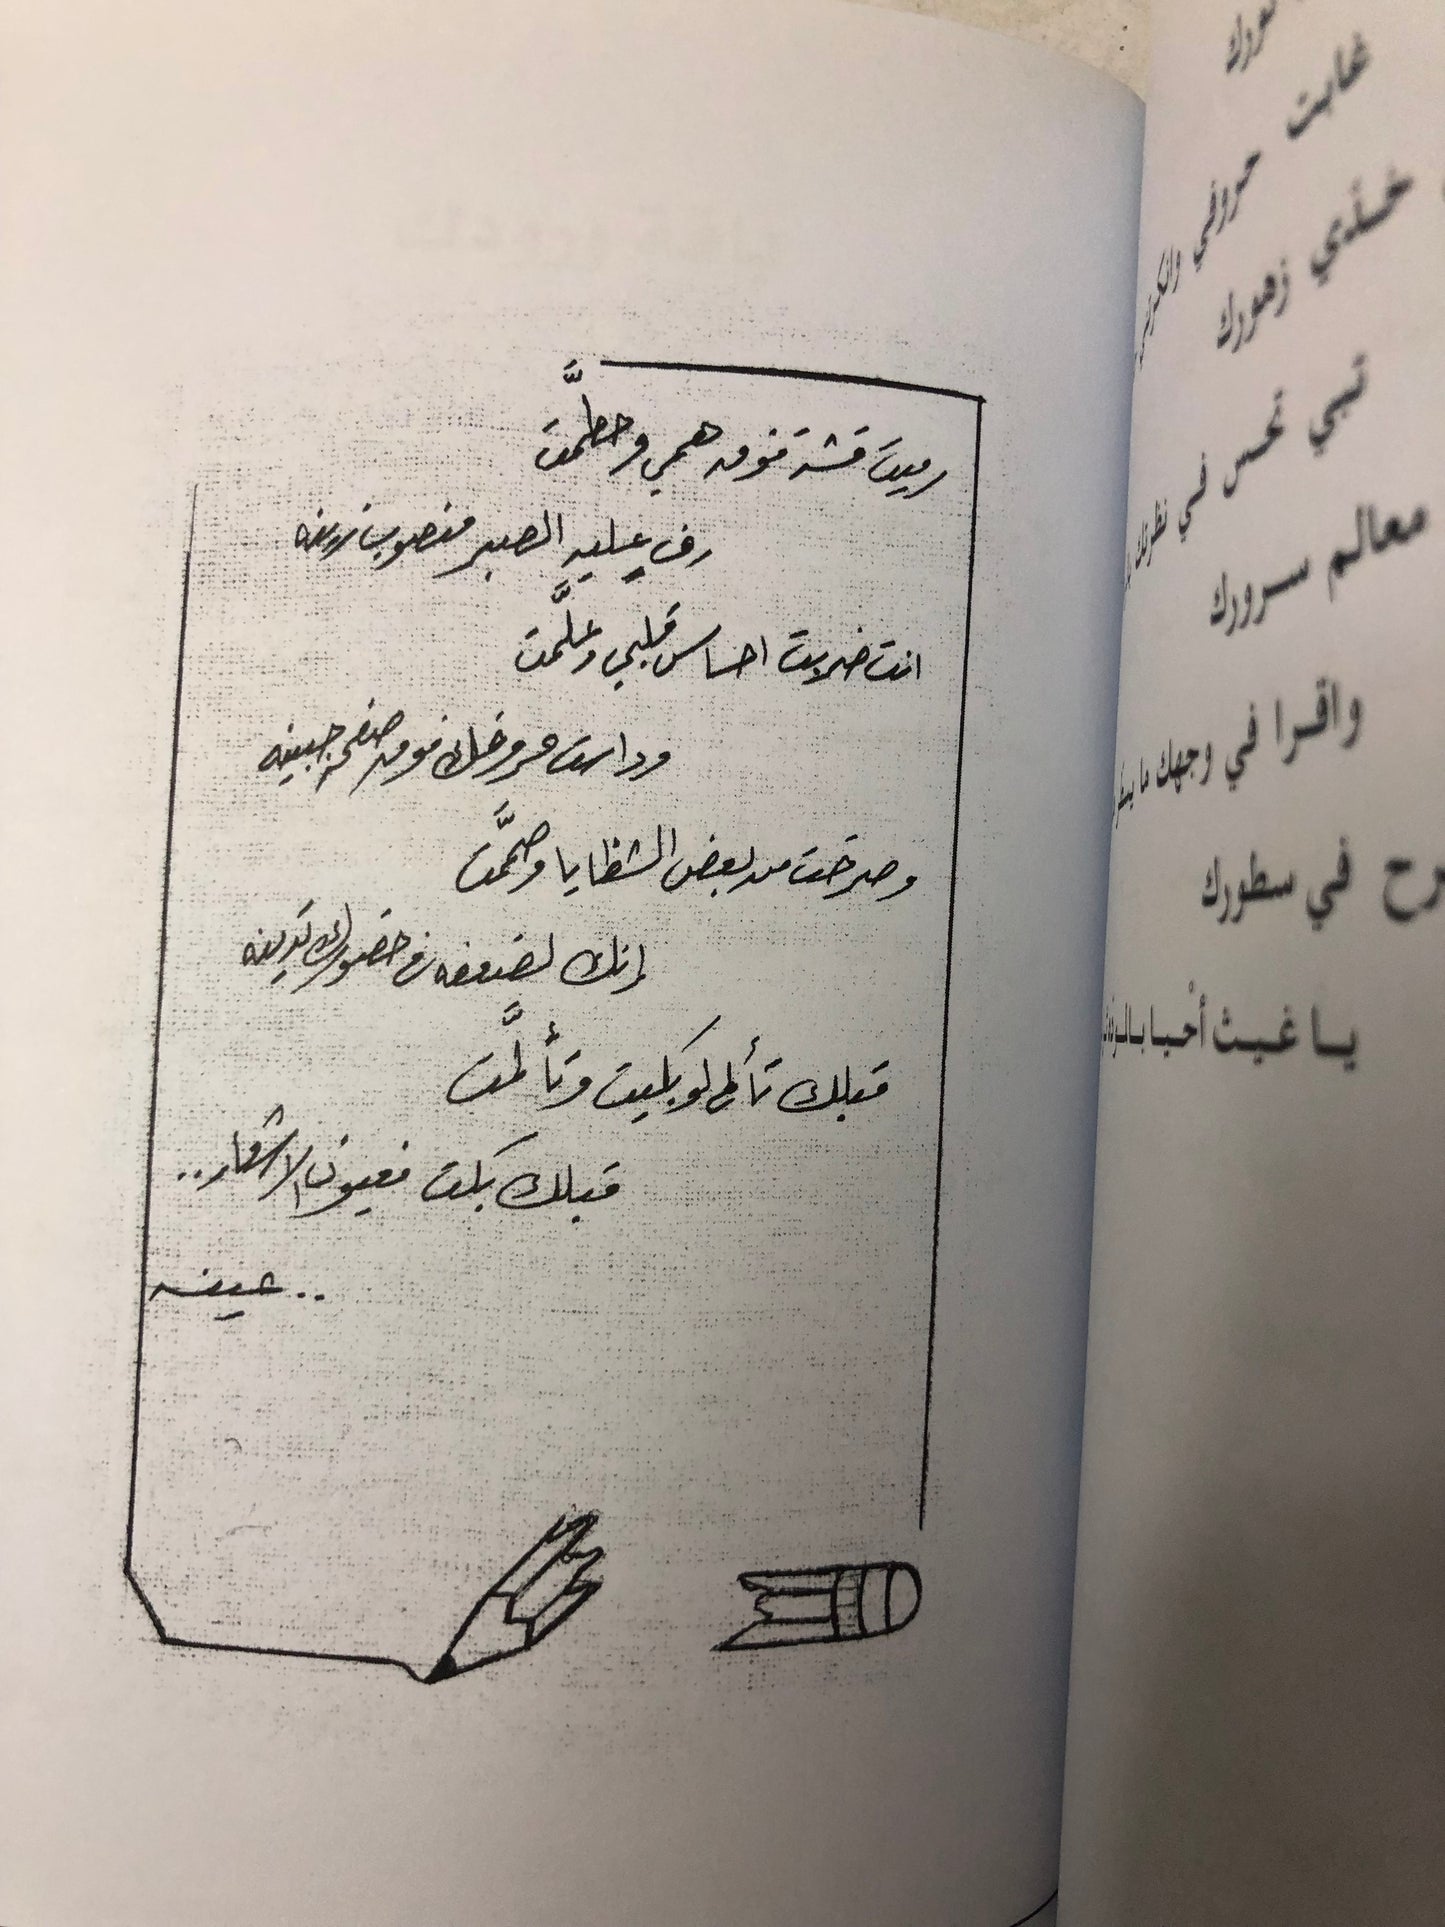 رميت قشة فوق همي وحطَّمت
رف عليه الصبر منصوب
انت ضربت احساس قلبي وعلَّمت
وداست فوق صفحة جبينه
وصرخت من بعض الشظايا وصمَّمت
إنك لضعفه في حضورك تدينه
قبلك تألم لو بكيت وتألَّمت
قبلك بكت فعيون الاشعار..
..عينه
غابت حروفي
خذي زهورك
تبي تحس في نظرتك
معالم سرورك
واقرا في وجهك ما
في سطورك
يا غيث أحيا